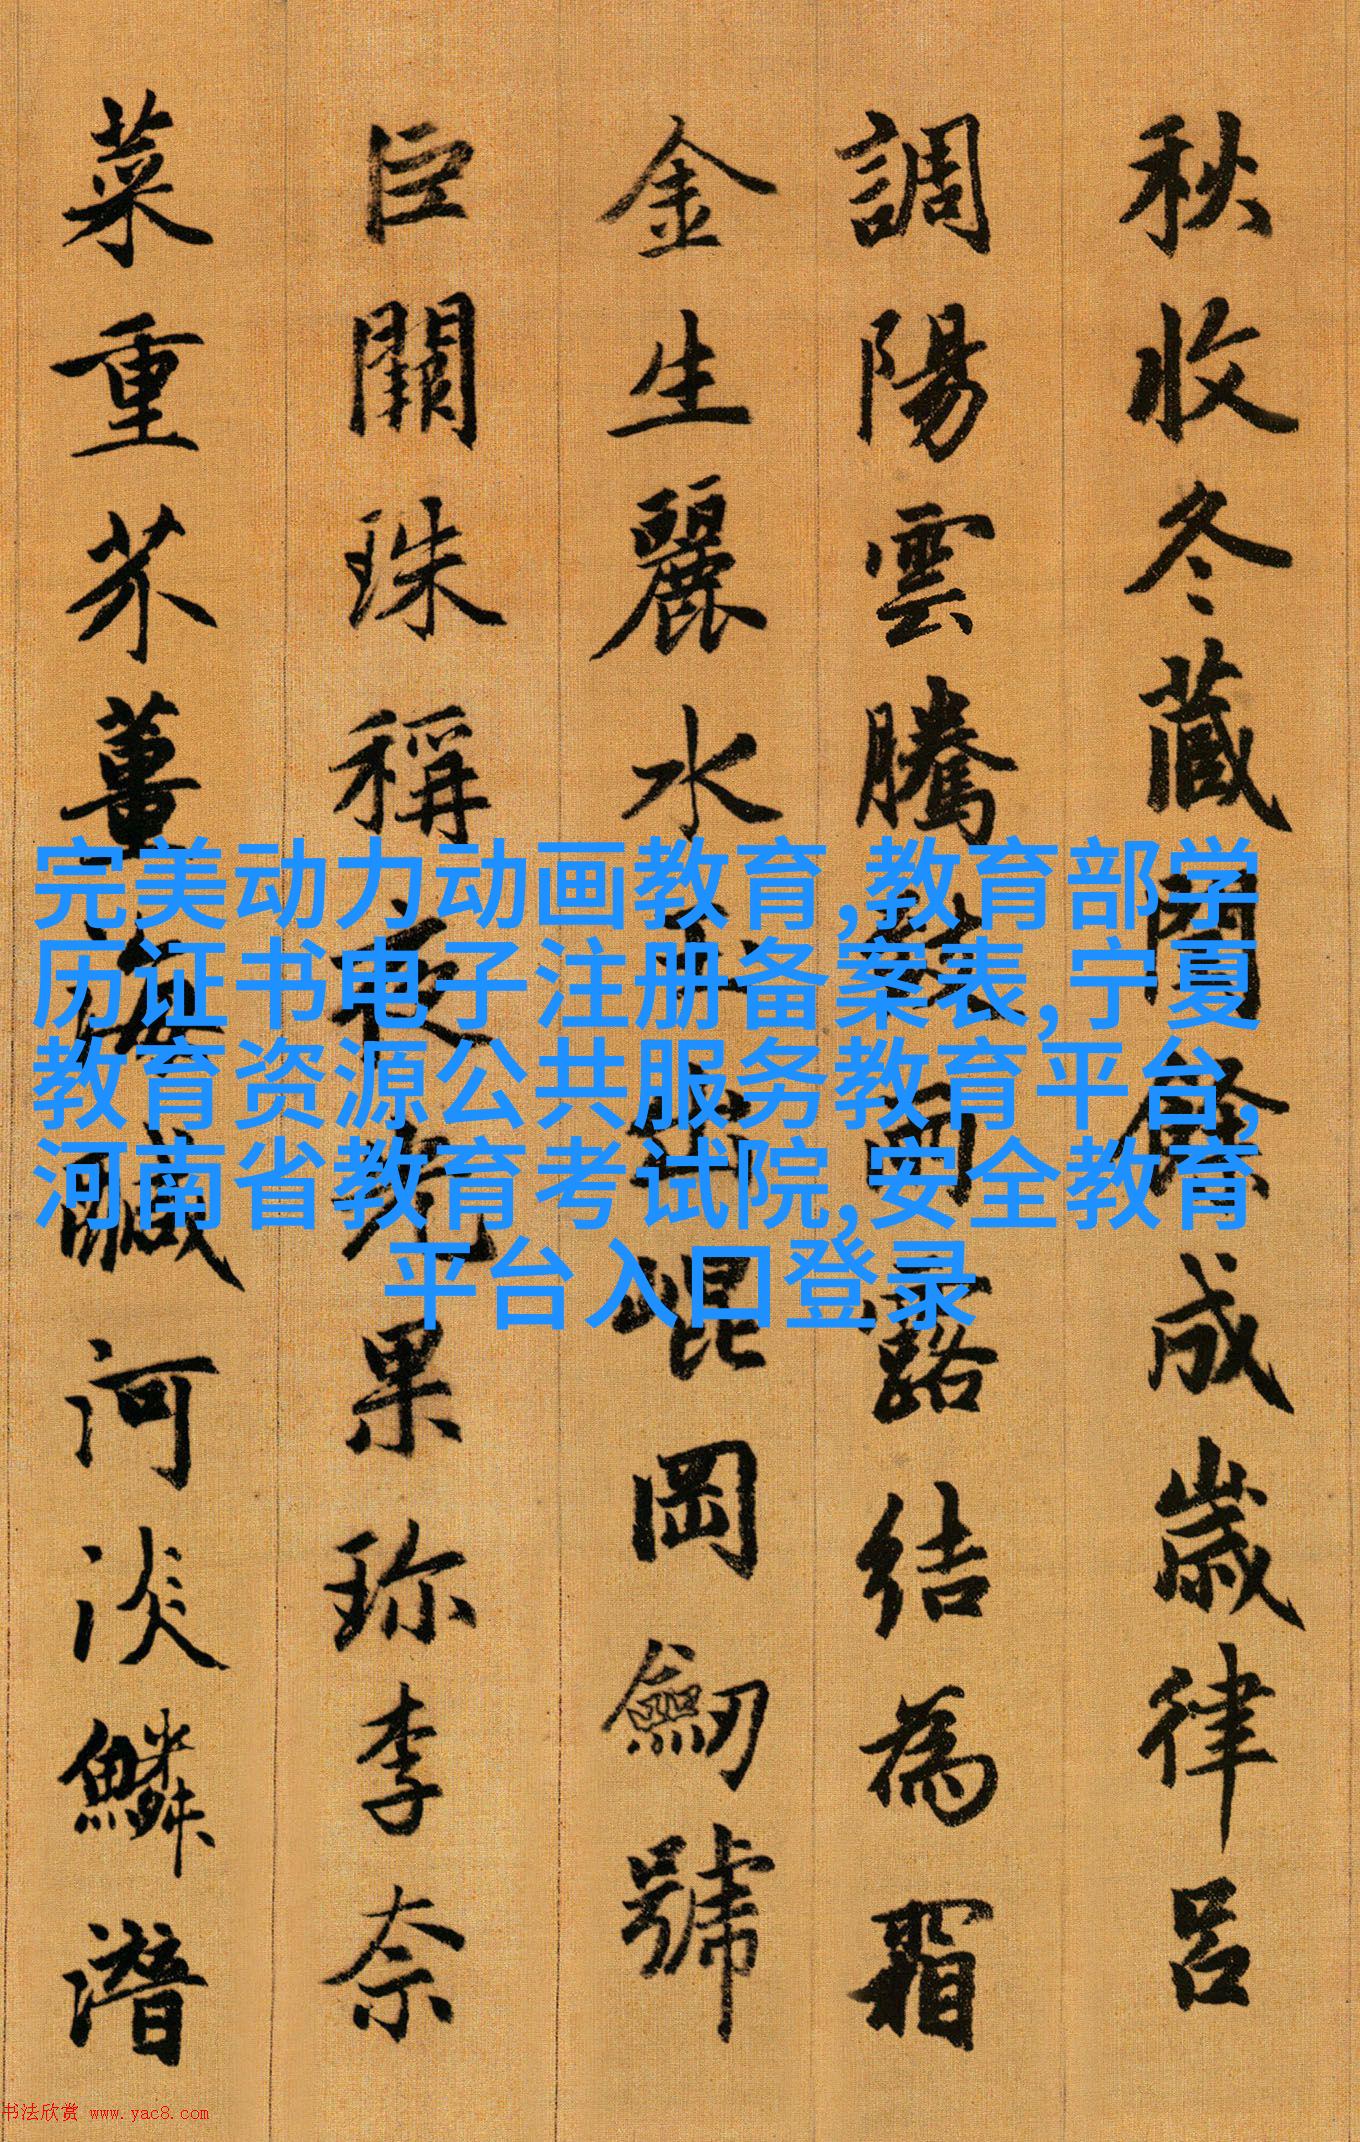 秋收冬藏閏餘成歲律呂
調陽雲騰致雨露結為霜
金生麗水玉出崐岡劒號
巨闕珠稱夜光果珎李柰
菜重芥薑海醎河淡鱗潛
完美动力动画教育,教育部学
历证书电子注册备案表,宁夏
教育资源公共服务教育平台,
河南省教育考试院,安全教育
平台入口登录
书法欣赏 www.yac8.com